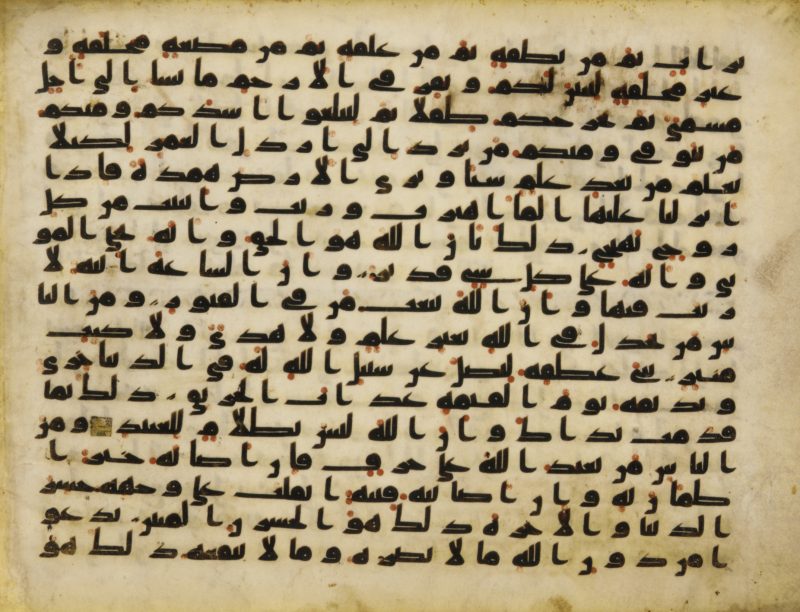 تراب ثم من نطفة ثم من علقة ثم من مضغة مخلقة و
غير مخلقة لنبين لكم ونقر في الارحم ما نشا الى اجل
مسمى ثم نخرجكم طفلا ثم لتبلغوا اشدكم ومنكم
من يتوفى ومنكم من يرد الى ارذل العمر لكيلا
يعلم من بعد علم شيا وترى الارض همدة فاذا
انزلنا عليها الما اهتزت وربت وانبتت من كل
زوج بهيج ذلك بان الله هو الحق وانه يحي المو
تى وانه على كل شي قدير وان الساعة اتية لا
ريب فيها وان الله يبعث من في القبور ومن النا
س من يجدل في الله بغير علم ولا هدى ولا كتب
منير ثني عطفه ليضل عن سبيل الله له في الدنيا خزي
ونذيقه يوم القيمة عذاب الحريق ذلك بما
قدمت يداك وان الله ليس بظلام للعبيد ومن
الناس من يعبد الله على حرف فان اصابه خير ا
طمان به وان اصابته فتنة انقلب على وجهه خسر
الدنيا والاخرة ذلك هو الخسران المبين يدعو
ا من دون الله ما لا يضره وما لا ينفعه ذلك هو